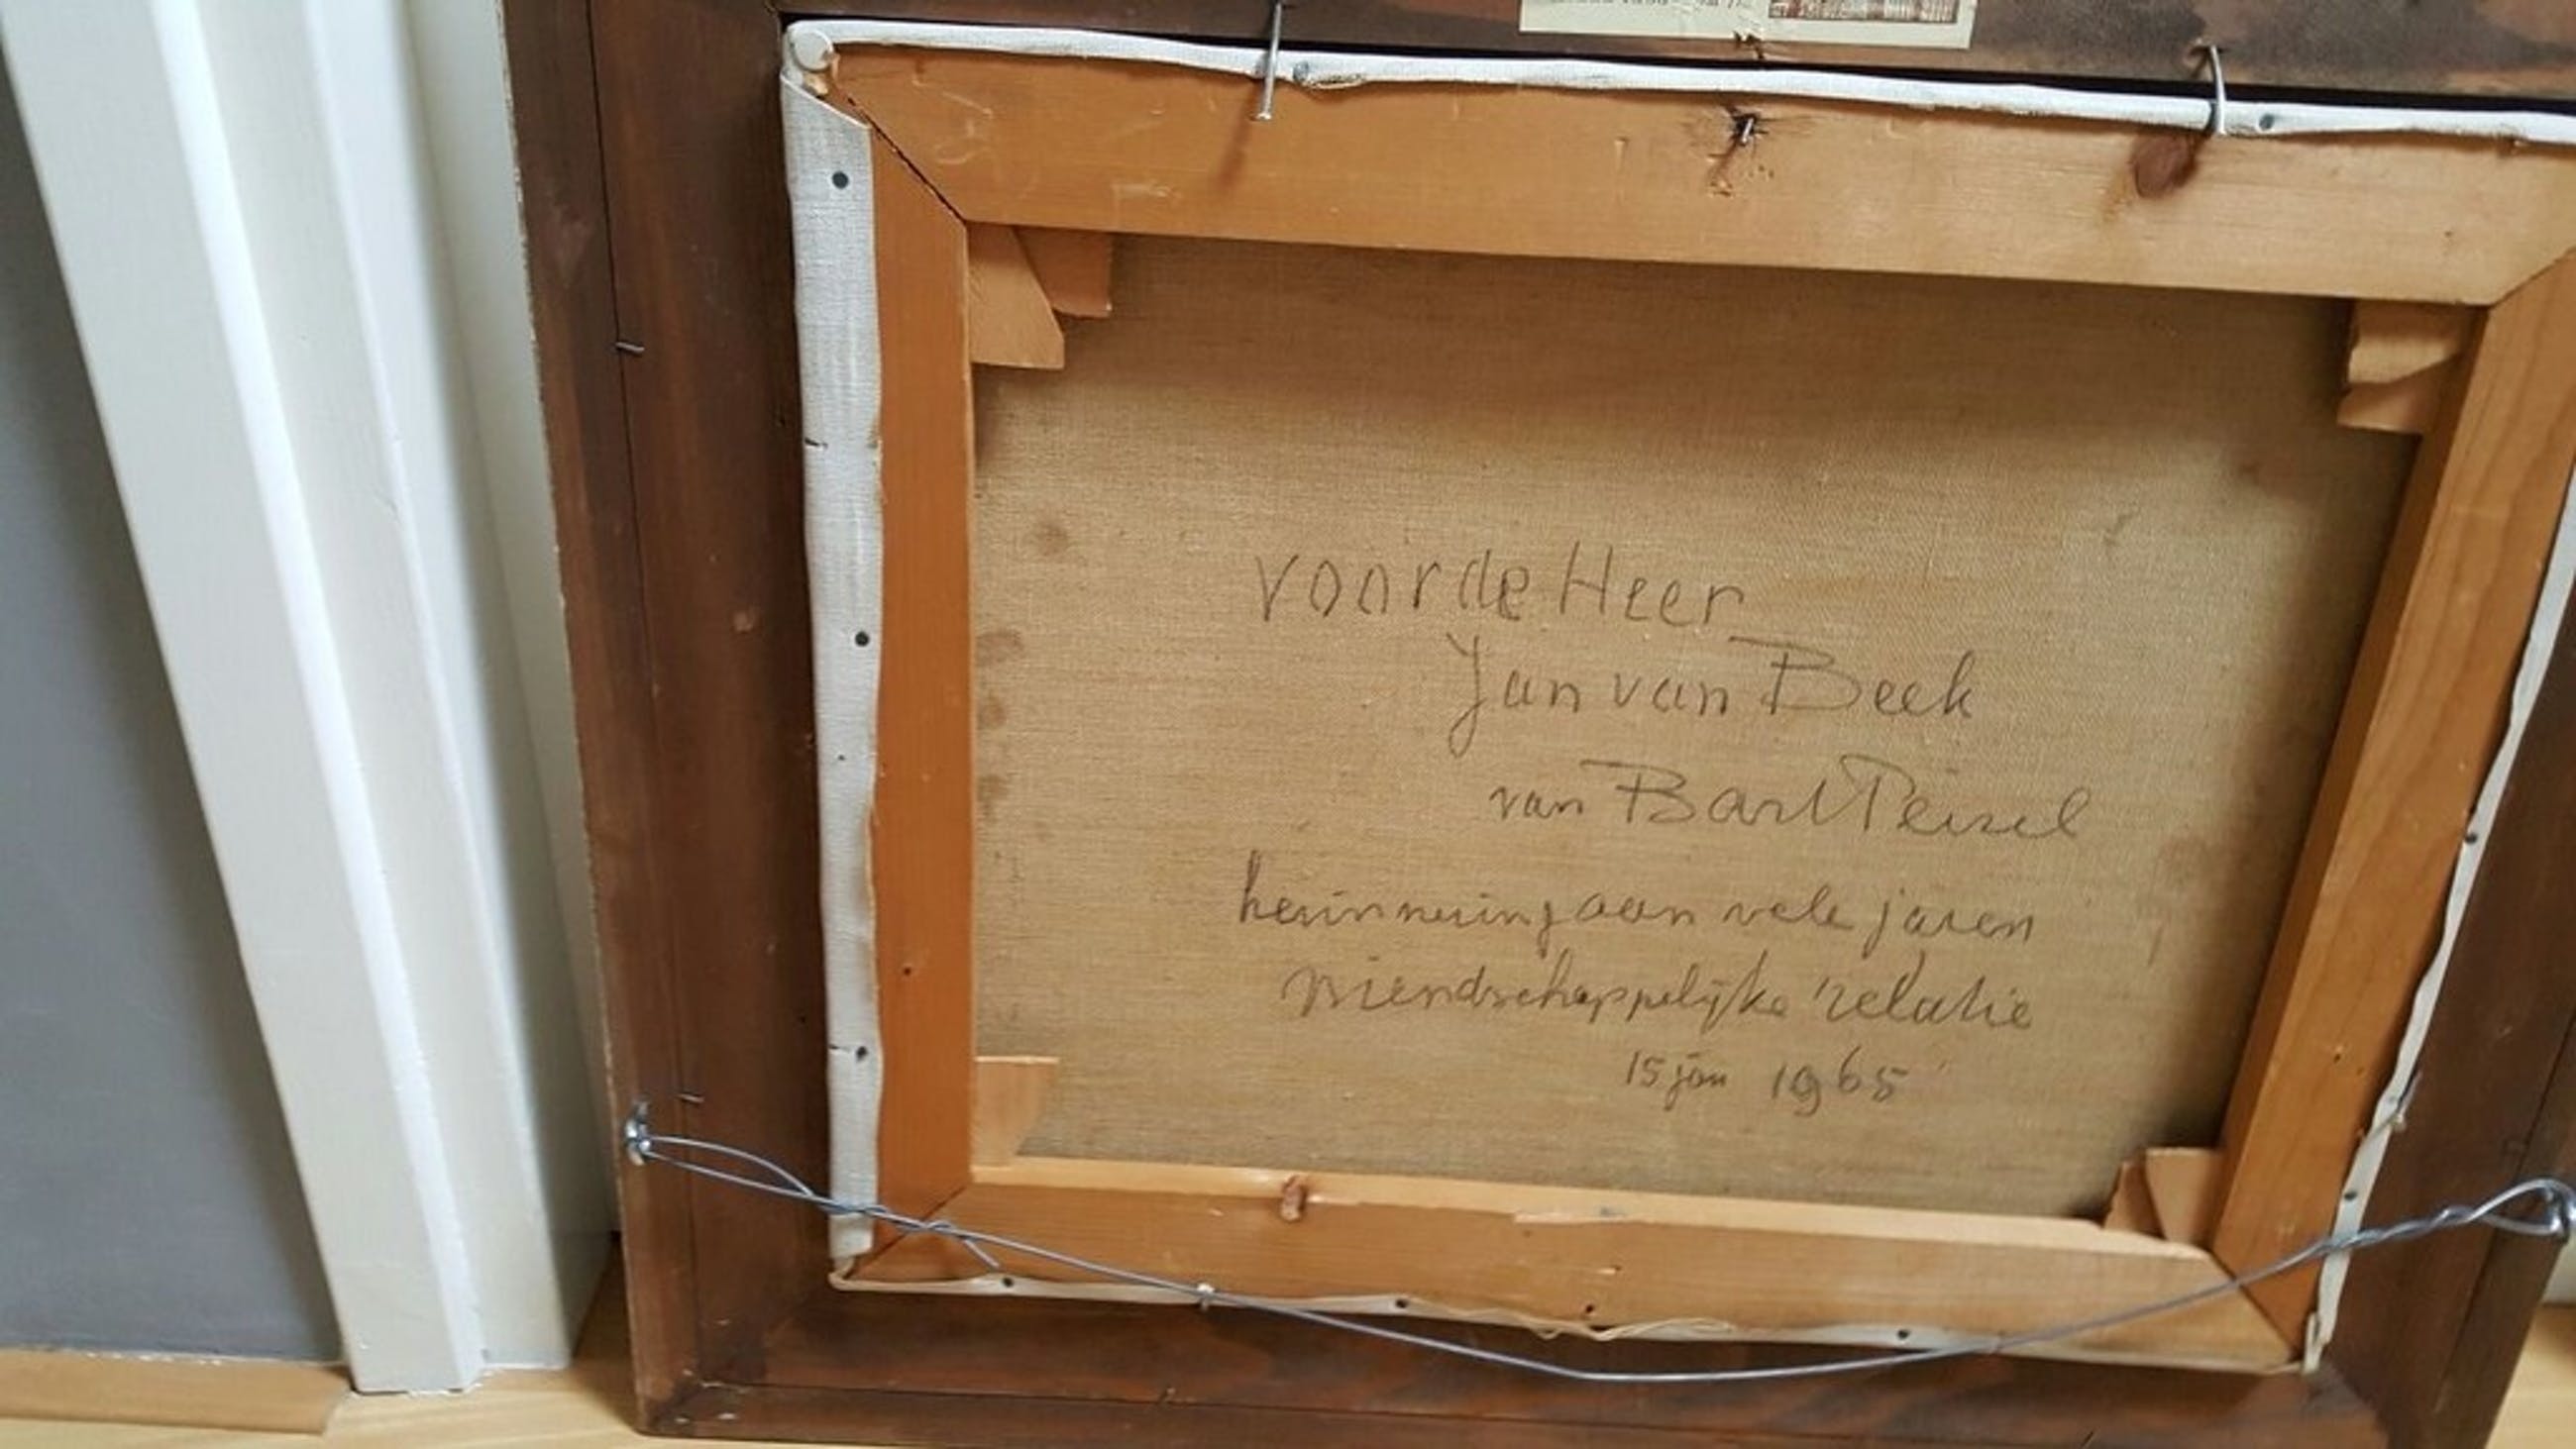 voor de Heer
Jan van Beek
van Bart Peizel
herinnering aan vele jaren
vriendschappelijke relatie
15 jan 1965